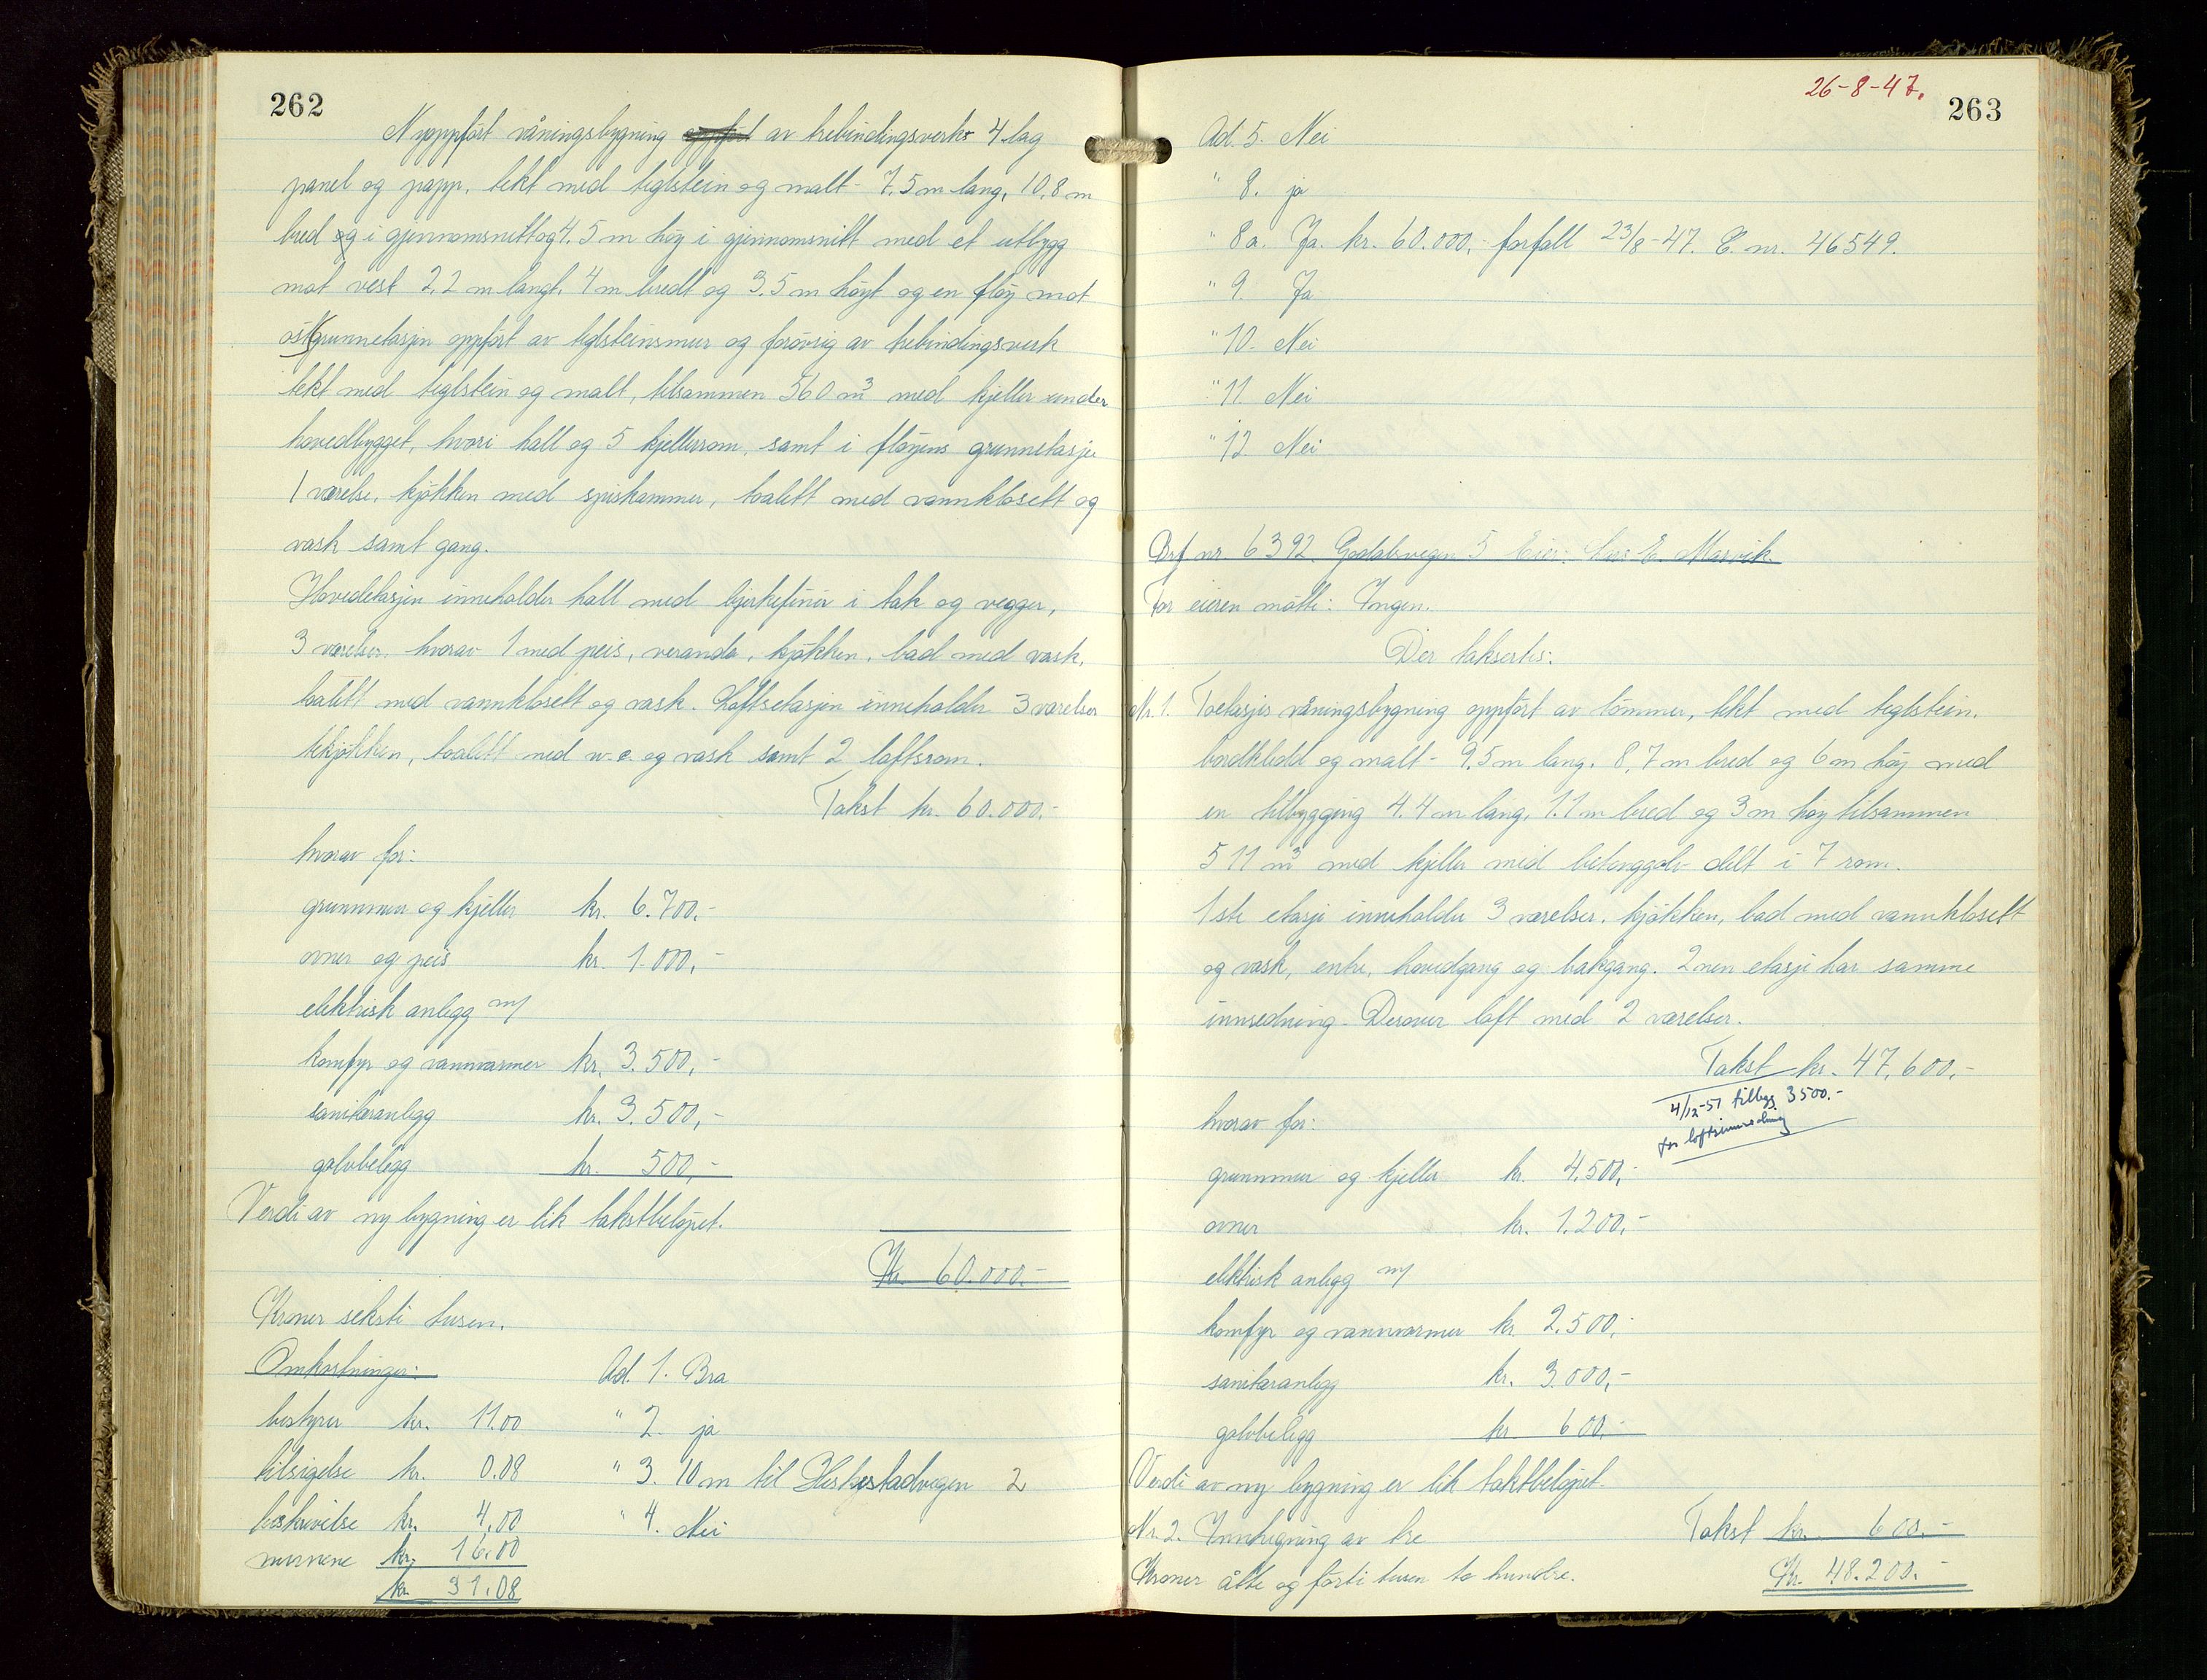 262
Nyoppført våningsbygning av trebindingsverk 4 lag
panel og papp, tekt med teglstein og malt - 7.5 m lang, 10.8 m
bred og i gjennomsnitt og 4.5 m høy i gjennomsnitt med et utbygg
mot vest 2.2 m langt, 4 m bredt og 3.5 m høyt og en fløy mot
øst grunnetasjen oppført av teglsteinsmur og forøvrig av trebindingsverk
tekt med teglstein og malt, tilsammen 560 m³ med kjeller under
hovedbygget, hvori hall og 5 kjellerrom, samt i fløyens grunnetasje
1 værelse, kjøkken med spiskammer, toalett med vannklosett og
vask samt gang.
Hovedetasjen inneholder hall med bjerkefinér i tak og vegger,
3 værelser hvorav 1 med peis, veranda, kjøkken, bad med vask,
toalett med vannklosett og vask. Loftsetasjen inneholder 3 værelser
tekjøkken, toalett med w.c. og vask samt 2 loftsrom.
Takst kr. 60.000.-
hvorav for:
grunnmur og kjeller kr. 6.700,-
ovner og peis kr. 1.000,-
elektrisk anlegg m/
komfyr og vannvarmer kr. 3.500,-
sanitæranlegg kr. 3.500,-
golvbelegg kr. 500,-
Verdi av ny bygning er lik takstbeløpet.
Kr. 60.000.-
Kroner seksti tusen.
Omkostninger: Ad. 1. Bra
bestyrer kr. 11.00 " 2. ja
tilsigelse kr. 0.08 " 3. 10 m til Hestestadvegen 2
beskrivelse kr. 4.00 " 4. Nei
mennene kr. 16.00
kr. 31.08
26-8-47.
263
Ad. 5. Nei
" 8. ja
" 8a. Ja. kr. 60.000,- forfall 23/8-47. E. nr. 46549.
" 9. Ja
" 10. Nei
" 11. Nei
" 12. Nei
Brf. nr. 6392 Godalsvegen 5 Eier: Lars E. Marvik.
For eieren møtte: Ingen.
Der takseres:
Nr. 1. Toetasjes våningsbygning oppført av tømmer, tekt med teglstein,
bordkledd og malt - 9.5 m lang, 8,7 m bred og 6 m høy med
en tilbygging 4.4 m lang, 1.1 m bred og 3 m høy tilsammen
511 m³ med kjeller med betonggolv delt i 7 rom.
1ste etasje inneholder 3 værelser, kjøkken, bad med vannklosett
og vask, entre, hovedgang og bakgang. 2nen etasje har samme
innredning. Derover loft med 2 værelser.
Takst kr. 47.600,-
4/12-51 tillegg 3500.-
for loftsinnredning
hvorav for:
grunnmur og kjeller kr. 4.500,-
ovner kr. 1.200,-
elektrisk anlegg m/
komfyr og vannvarmer kr. 2.500,-
sanitæranlegg kr. 3.000,-
golvbelegg kr. 600.-
Verdi av ny bygning er lik takstbeløpet.
Nr. 2. Innhegning av tre Takst kr. 600.-
Kroner åtte og førti tusen to hundre. Kr. 48.200.-